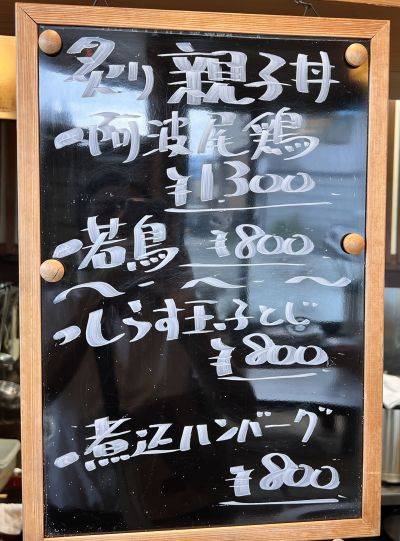 炙り親子丼
-阿波尾鶏
¥1.300
-若鳥 ¥800
〜 〜 〜
-しらす玉子とじ
¥800
-煮込ハンバーグ
¥800